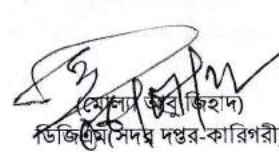 (মোল্যা আবু জিহাদ)
ডিজিএম সদর দপ্তর-কারিগরী